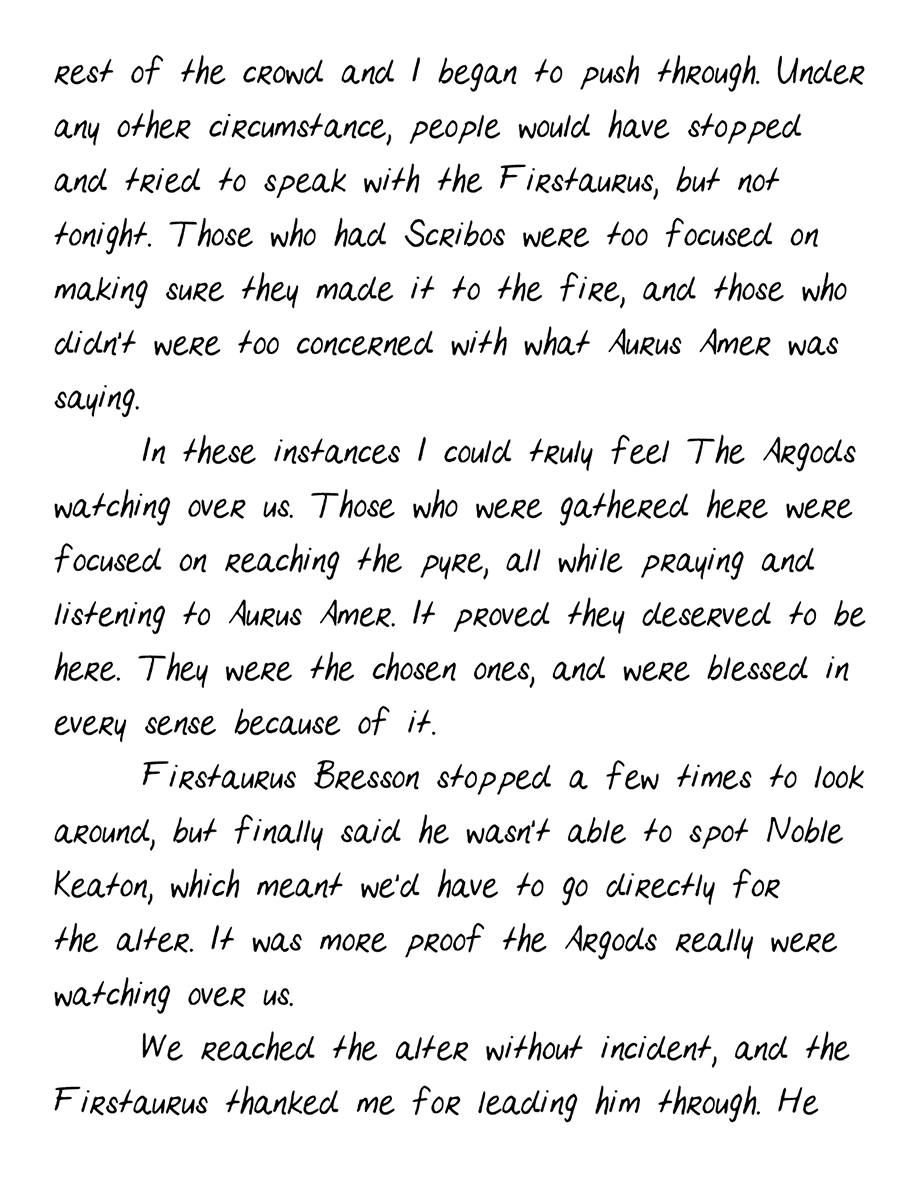 rest of the crowd and I began to push through. Under
any other circumstance, people would have stopped
and tried to speak with the Firstaurus, but not
tonight. Those who had Scribos were too focused on
making sure they made it to the fire, and those who
didn't were too concerned with what Aurus Amer was
saying.
In these instances I could truly feel The Argods
watching over us. Those who were gathered here were
focused on reaching the pyre, all while praying and
listening to Aurus Amer. It proved they deserved to be
here. They were the chosen ones, and were blessed in
every sense because of it.
Firstaurus Bresson stopped a few times to look
around, but finally said he wasn't able to spot Noble
Keaton, which meant we'd have to go directly for
the alter. It was more proof the Argods really were
watching over us.
We reached the alter without incident, and the
Firstaurus thanked me for leading him through. He